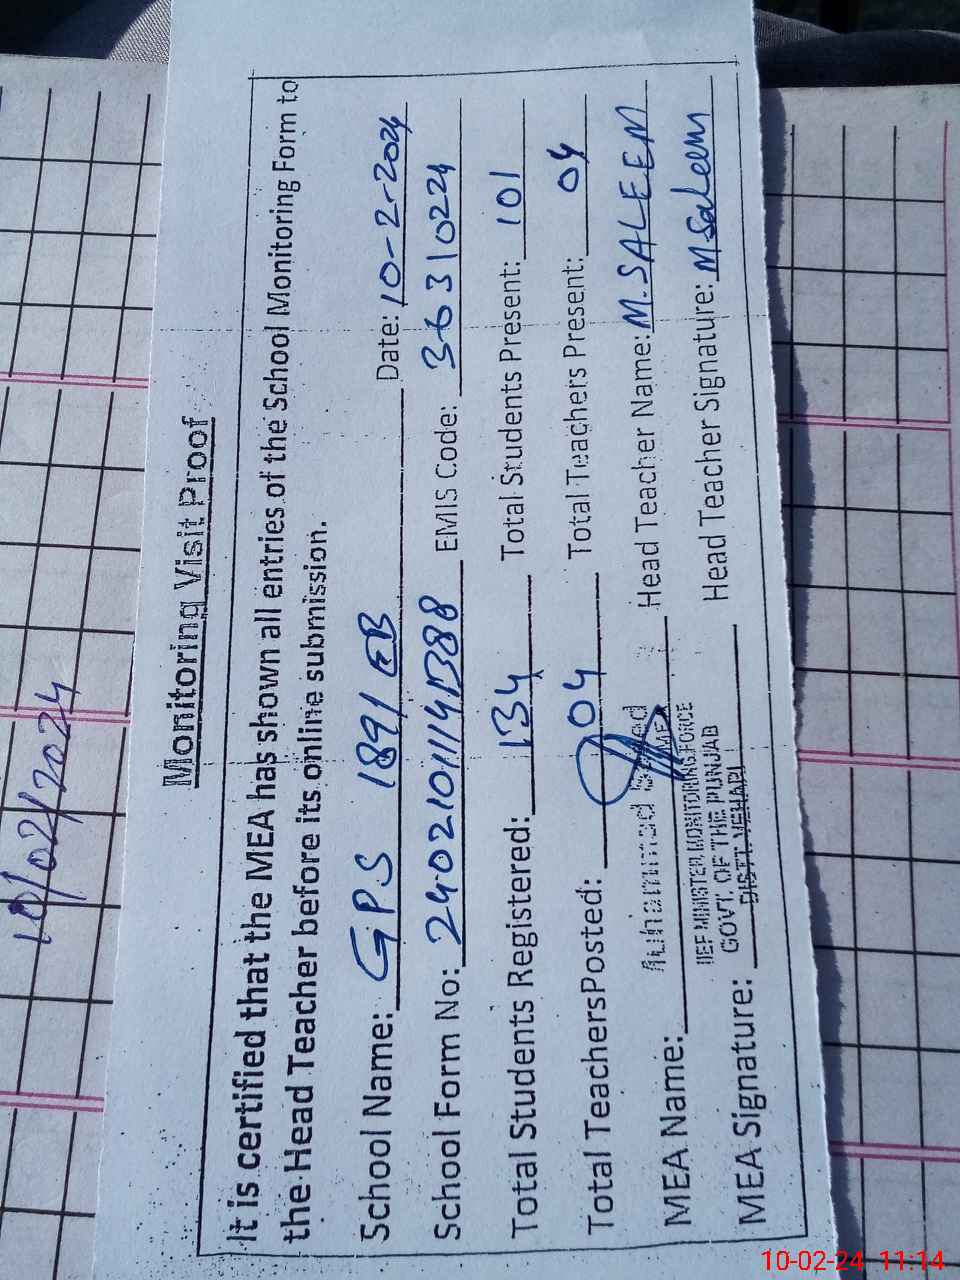 10/02/2024
Monitoring Visit Proof
It is certified that the MEA has shown all entries of the School Monitoring Form to
the Head Teacher before its online submission.
School Name: GPS 189/EB Date: 10-2-2024
School Form No: EMIS Code: 36310224
Total Students Registered: 134 Total Students Present: 101
Total TeachersPosted: 04 Total Teachers Present: 04
MEA Name: Muhammad Head Teacher Name: M.SALEEM
MINISTER, MONITORING FORCE
GOVT. OF THE PUNJAB
DISTT. VEHARI
MEA Signature: Head Teacher Signature: MSaleem
10-02-24 11:14